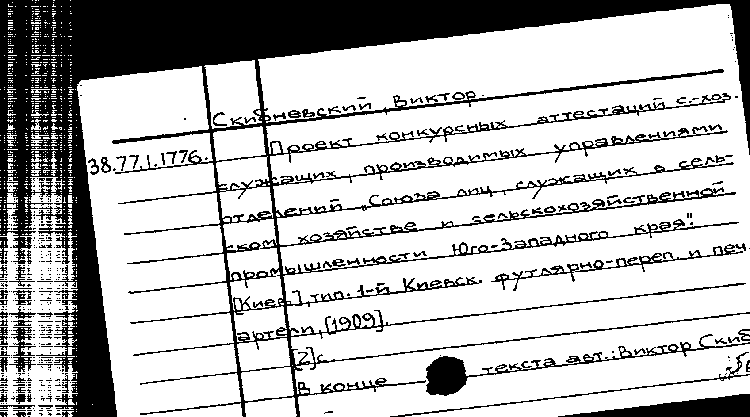 Скибневский, Виктор.
38.77.1.1776. Проект конкурсных аттестаций с.-хоз.
служащих, производимых управлениями
отделений „Союза лиц, служащих в сель-
ском хозяйстве и сельскохозяйственной
промышленности Юго-Западного края".
[Киев], тип. 1-й Киевск. футлярно-переп. и печ.
артели, [1909].
[2]с.
В конце текста авт.: Виктор Скиб